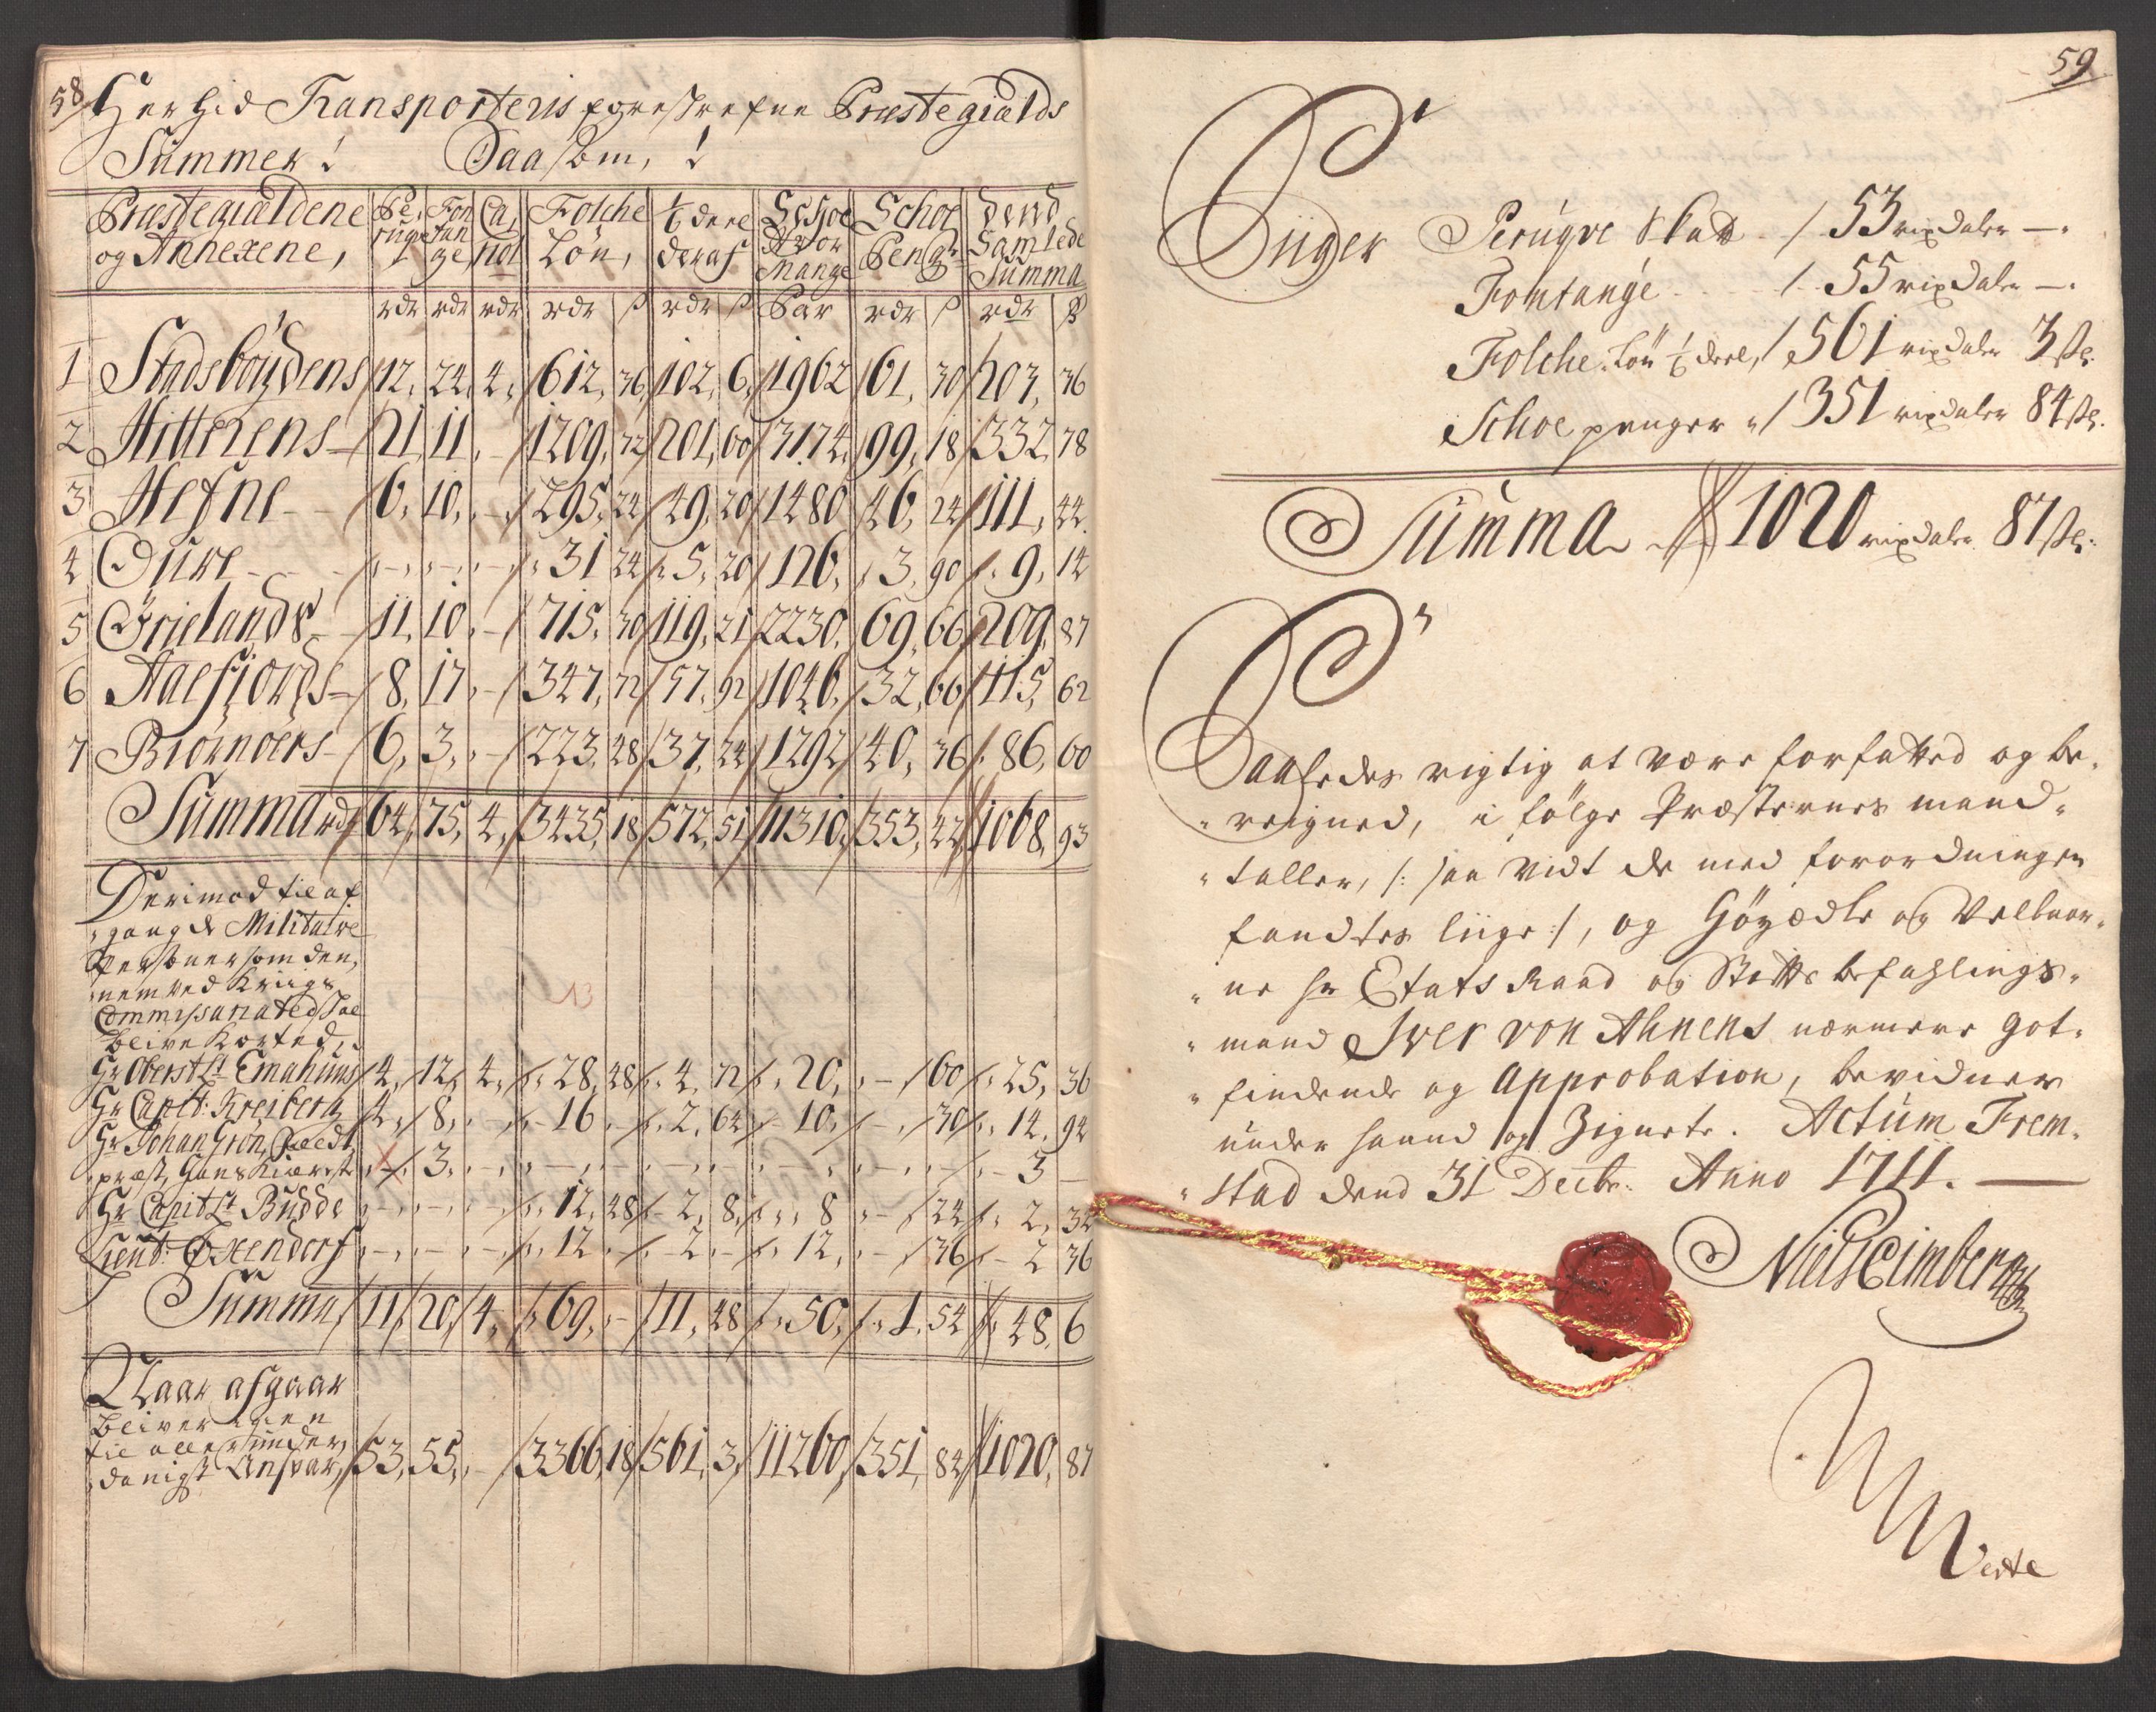 58
Her hid Transporteris forestrefne Præstegialds
Summer! Saasom,!
Præstegialdene og Annexene, | Peruqve | Fontange | Ca, riol | Folche Løn, | 1/6 deel deraf | Schoe Hvor Mange | Schoe Penge | Dend Samlede Summa
rdr | rdr | rdr | rdr | ß | rdr | ß | Par | rdr | ß | rdr | ß
1 Stadsbøydens 12, 24, 4, 612, 36, 102, 6, 1962 61, 30 203, 36
2 Hitterens 21, 11, - 1209, 72 201, 60 3174, 99, 18 332, 78
3 Hefne 6, 10, - 295, 24 49, 20 1480 46, 24 111, 44
4 Oure - - - 31 24 5, 20 126, 3, 90 9, 14
5 Ørielands 11, 10, - 715, 30 119, 21 2230, 69, 66 209, 87
6 Aaefiords 8, 17, - 347, 72 57, 92 1046, 32, 66 115, 62
7 Biørnøers 6, 3, - 223, 48 37, 24 1292 40, 36 86, 60
Summa rdr 64, 75, 4, 3435, 18 572, 51 11310, 353, 42 1068, 93
Derimod til af
gang de Militaire
Personer som den,
nem ved Kriigs
Commissariated skal
blive Korted,
13
Hr Oberst Lt Emahuus 4, 12, 4, 28, 48 4, 72 20, - 60 25, 36
Hr Capit: Kreiberg 4, 8, - 16 - 2, 64 10, - 30 14, 94
Hr Johan Grøn, Feldt
præst, Hans Kiærest - 3, - - - - - - - - 3 -
Hr Capit Lt Budde - - - 12, 48 2, 8, 8 - 24 2, 32
Lieut: Oxendorf - - - 12 - 2 - 12, - 36 2 36
Summa 11, 20, 4, 69, - 11, 48 50, 1, 54 48, 6
Naar afgaar
bliver igien
til allerunder,
danigst Ansvar, 53, 55, - 3366, 18 561, 3, 11260, 351, 84 1020, 87
59
Siiger Peruqve Skatt / 53 rixdaler —.
Fontange / 55 rixdaler —.
Folche Løn 1/6 deel, / 561 rixdaler 3 ß.
Schoe penger / 351 rixdaler 84 ß.
Summa 1020 rixdaler 87 ß.
Saaledes rigtig at være forfatted og be,
reigned, i følge Præsternes mand,
taller, /: saa vidt de med forordningen
fandtes liige :/, og Høyædle og Velbaar,
ne Hr Etats Raad og Stiftsbefahlings,
mand Iver von Ahnens nærmere got,
findende og Approbation, bevidner
under haand og Zignete. Actum Trem,
stad dend 31 Decbr: Anno 1711. —
Niels Eimberg
Verte